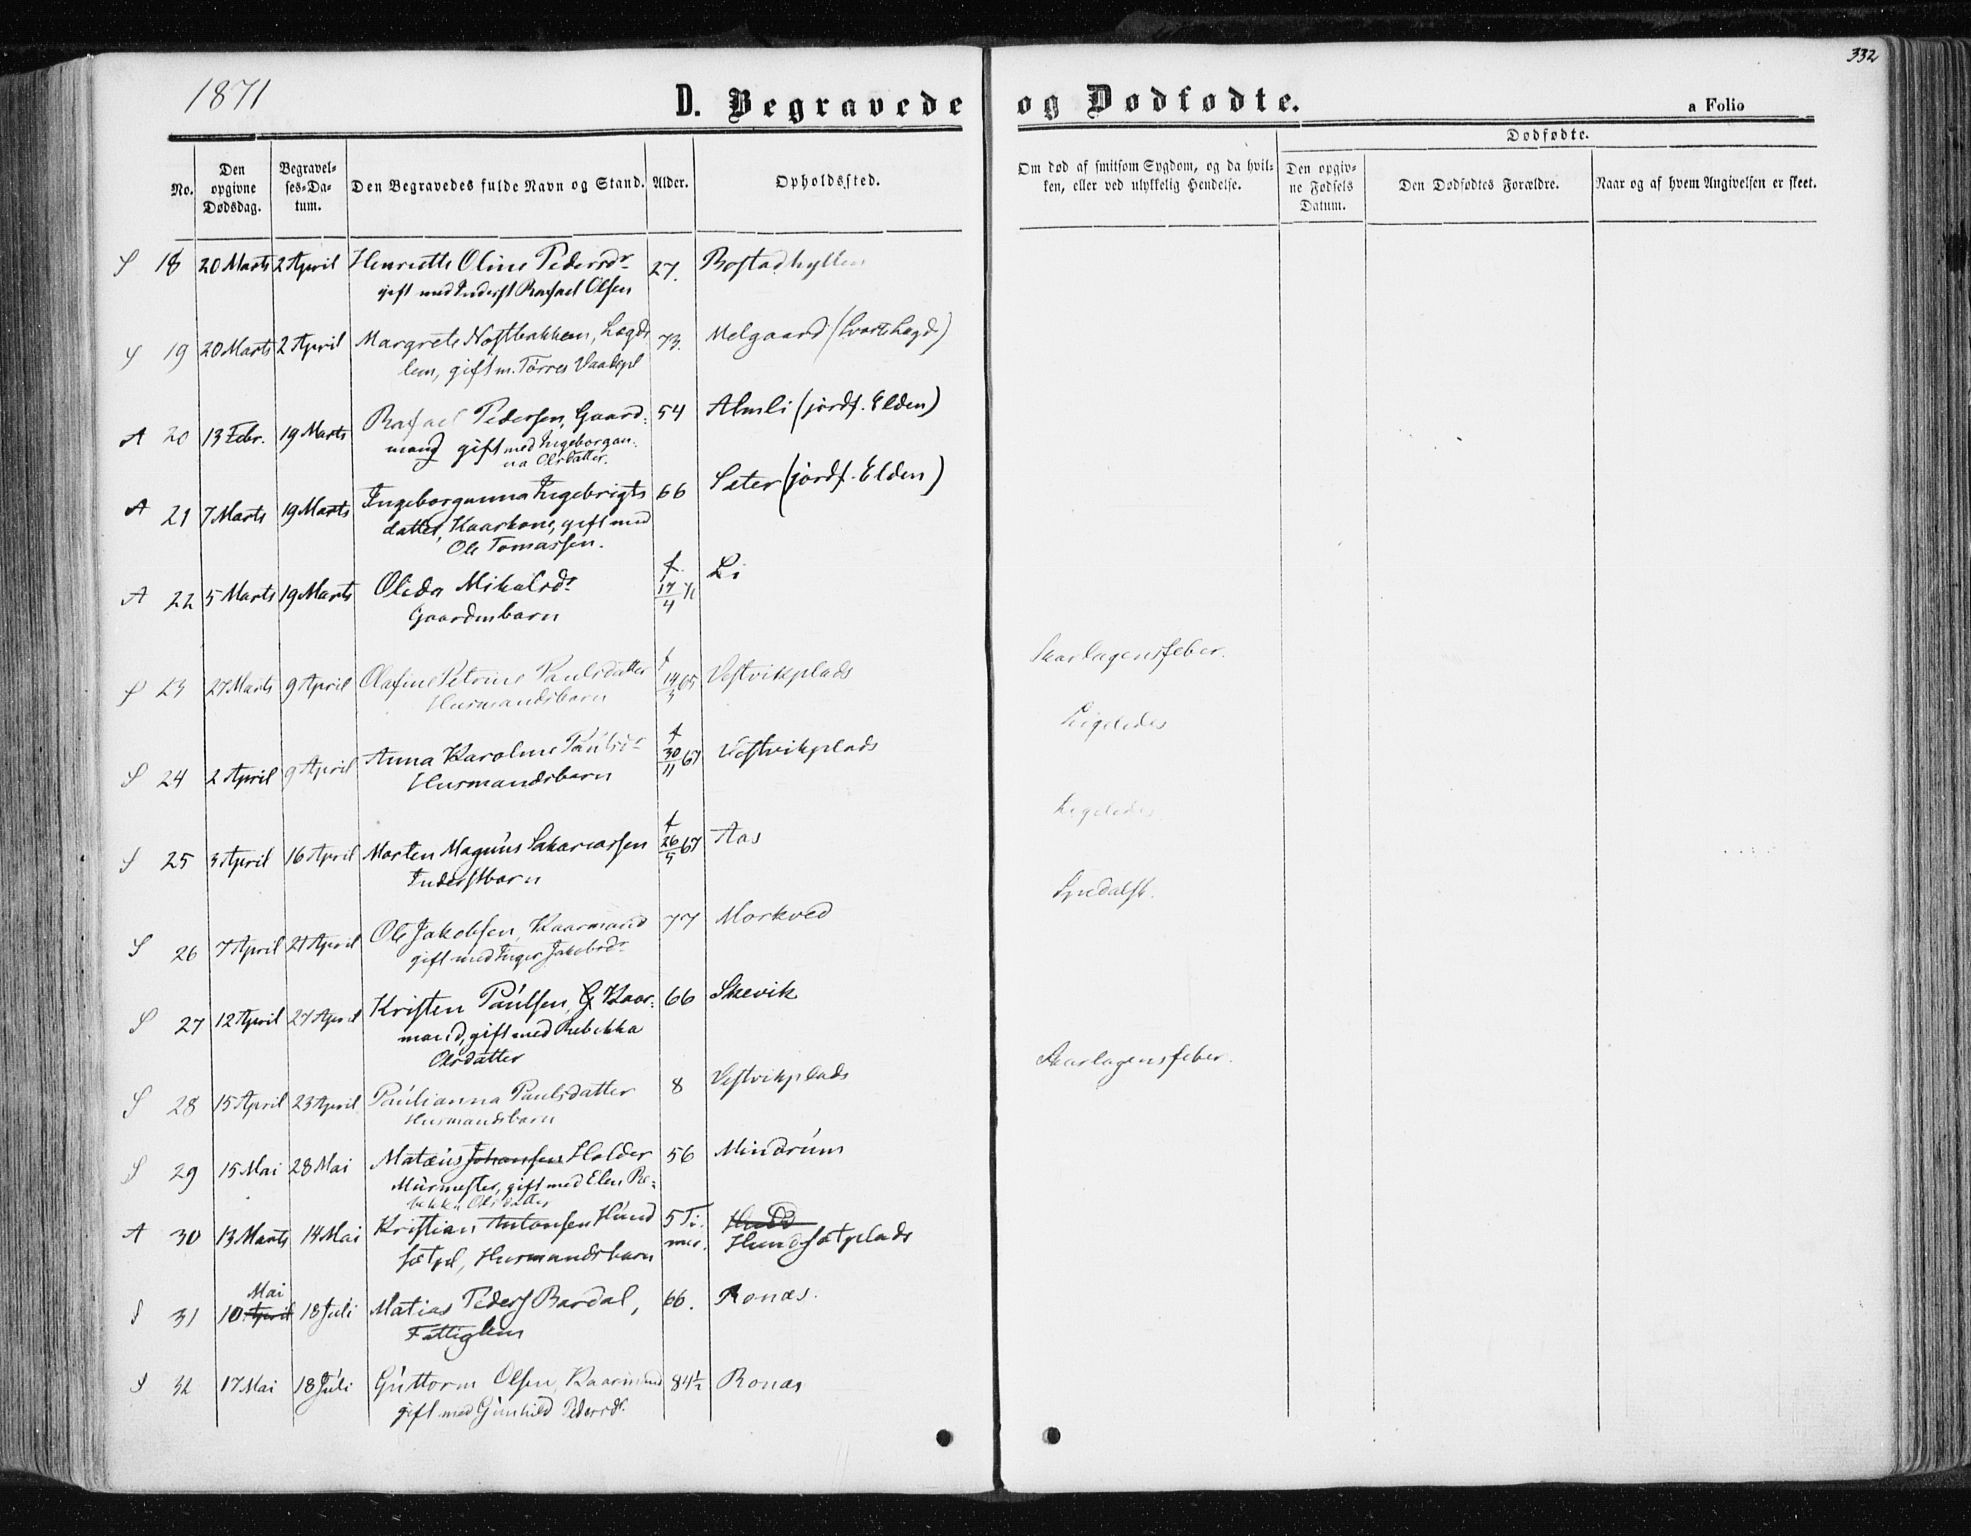 1871
D. Begravede og Dødfødte.
a Folio
332
No.
Den opgivne Dødsdag.
Begravelses-Datum.
Den Begravedes fulde Navn og Stand.
Alder.
Opholdssted.
Om død af smitsom Sygdom, og da hvilken, eller ved ulykkelig Hendelse.
Dødfødte.
Den opgivne Fødsels Datum.
Den Dødfødtes Forældre.
Naar og af hvem Angivelsen er skeet.
S 18 20 Marts 2 April Henriette Oline Pedersdr 27. Bostadhylten
gift med Inderst Rafael Olsen
S 19 20 Marts 2 April Margrete Nostbakken, Lægds 73. Melgaard
lem, gift m. Tørres Vaadspl
A 20 13 Febr. 19 Marts Rafael Pedersen, Gaard- 54 Almli (jordf. Elden)
mand gift med Ingeborgan-
na Olsdatter.
A 21 7 Marts 19 Marts Ingeborganna Ingebrigts 66 Sæter (jordf. Elden)
datter, Kaarkone, gift med
Ole Tomassen.
A 22 5 Marts 19 Marts Olida Mikalsdr f. 17/4 71 Li
Gaardmbarn
S 23 27 Marts 9 April Olafine Petrine Paulsdatter f 14/5 65 Vestvikplads Skarlagensfeber.
Husmandsbarn
S 24 2 April 9 April Anna Karoline Paulsdr f 30/11 67 Vestvikplads Ligeledes
Husmandsbarn
S 25 3 April 16 April Morten Magnus Sakariassen f 26/5 67 Aas Ligeledes
Inderstbarn
S 26 7 April 21 April Ole Jakobsen, Kaarmand 77 Morkved Spedalsk.
gift med Inger Jakobsdr
S 27 12 April 27 April Kristen Paulsen, G Kaar- 66 Skevik
mand, gift med Rebekka
Olsdatter
S 28 15 April 23 April Paulianna Paulsdatter 8 Vestvikplads Skarlagensfeber.
Husmandsbarn
S 29 15 Mai 28 Mai Matæus Johansen Holder 56 Mindrum
Murmester, gift med Elen Re-
bekka Olsdatter
A 30 13 Marts 14 Mai Kristian Antonsen Hund 5 Ti- Hudd
sætpl, Husmandsbarn mer. Hundsætplads
S 31 10 April Mai 18 Juli Matias Peders Bardal, 66. Ronæs.
Fattiglem
S 32 17 Mai 18 Juli Guttorm Olsen, Kaarmand 84 1/2 Ronæs
gift med Gunhild Pedersdr.